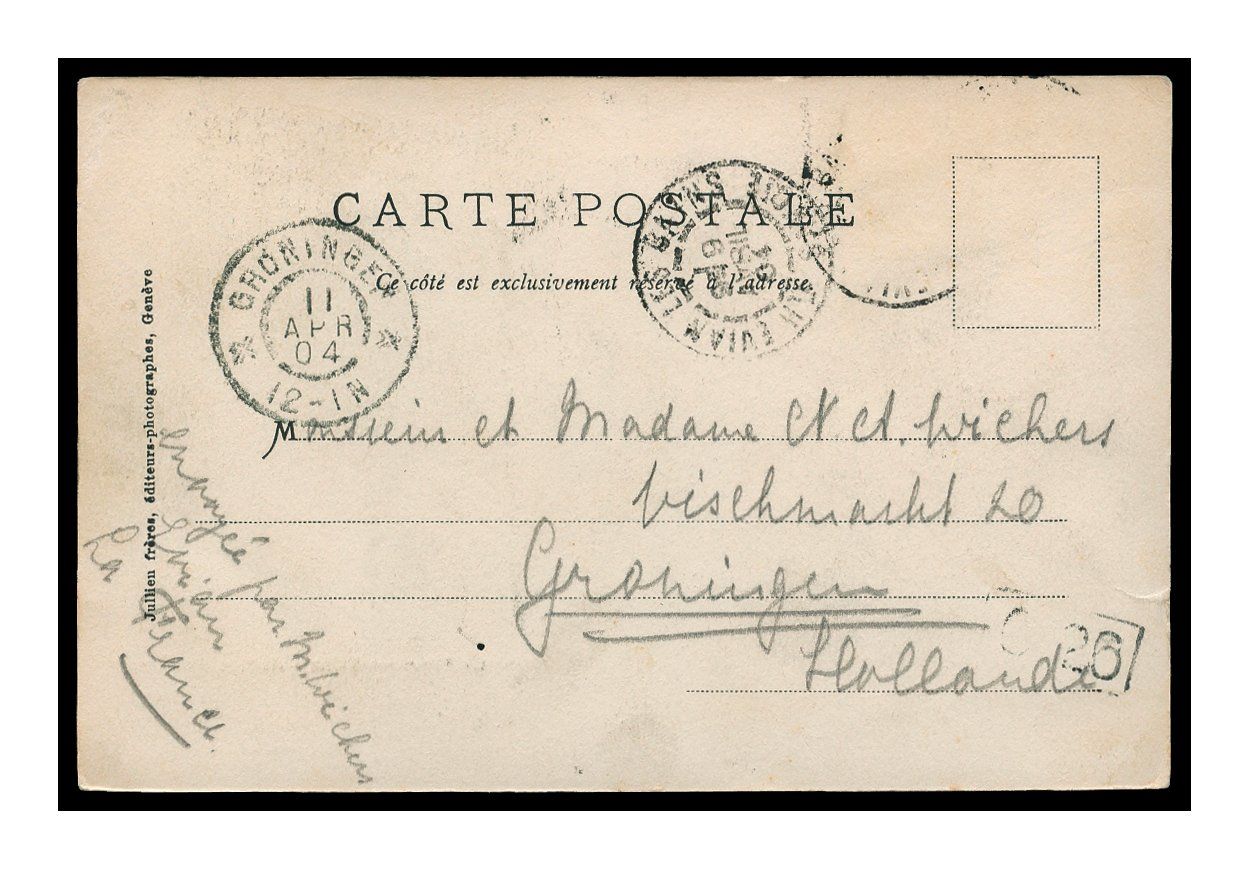 CARTE POSTALE
Ce côté est exclusivement réservé à l'adresse.
GRONINGEN
11
APR
04
12-1N
EVIAN LES BAINS
Monsieur et Madame N. A. Wichers
Vischmarkt 20
Groningen
Hollande
26
Envoyée par M. Wichers
Evian
La France.
Jullien frères, éditeurs-photographes, Genève